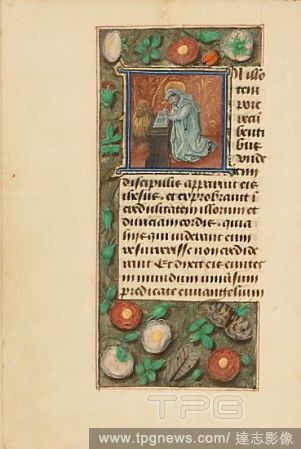 N illo
tem
pore
recū
benti
bus
unde
cim
discipulis apparuit eis
ihesus. et exprobravit ī
credulitatem illorum et
duriciam cordis. quia
qui viderant eum
resurrexisse non credide
rant Et dixit eis euntes
in mundum
predicate euuangelium
TPG
www.tpgnews.com/ 達志影像